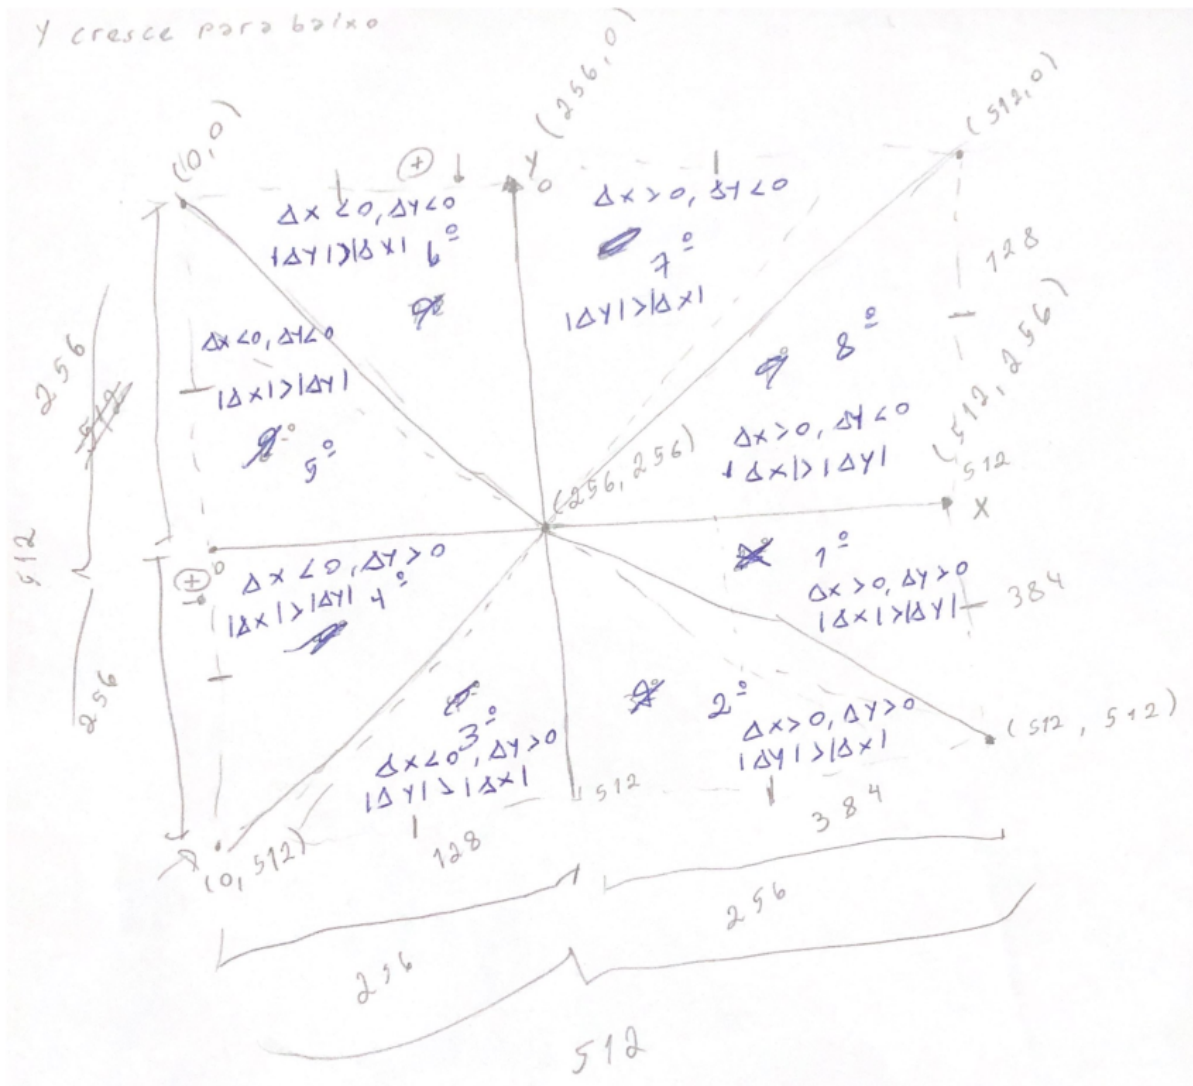 Y cresce para baixo
(0,0)
(256,0)
(512,0)
+
Y
0
Δx<0, ΔY<0
|ΔY|>|ΔX| 6º
Δx>0, ΔY<0
7º
|ΔY|>|Δx|
128
Δx<0, ΔY<0
|Δx|>|ΔY|
5º
8º
Δx>0, ΔY<0
|Δx|>|ΔY|
256
512
(256,256)
(512,256)
512
X
512
+
0
Δx<0, ΔY>0
|Δx|>|ΔY| 4º
1º
Δx>0, ΔY>0
|Δx|>|ΔY|
384
256
3º
Δx<0, ΔY>0
|ΔY|>|Δx|
2º
Δx>0, ΔY>0
|ΔY|>|Δx|
(512, 512)
512
(0,512)
128
384
256
256
512